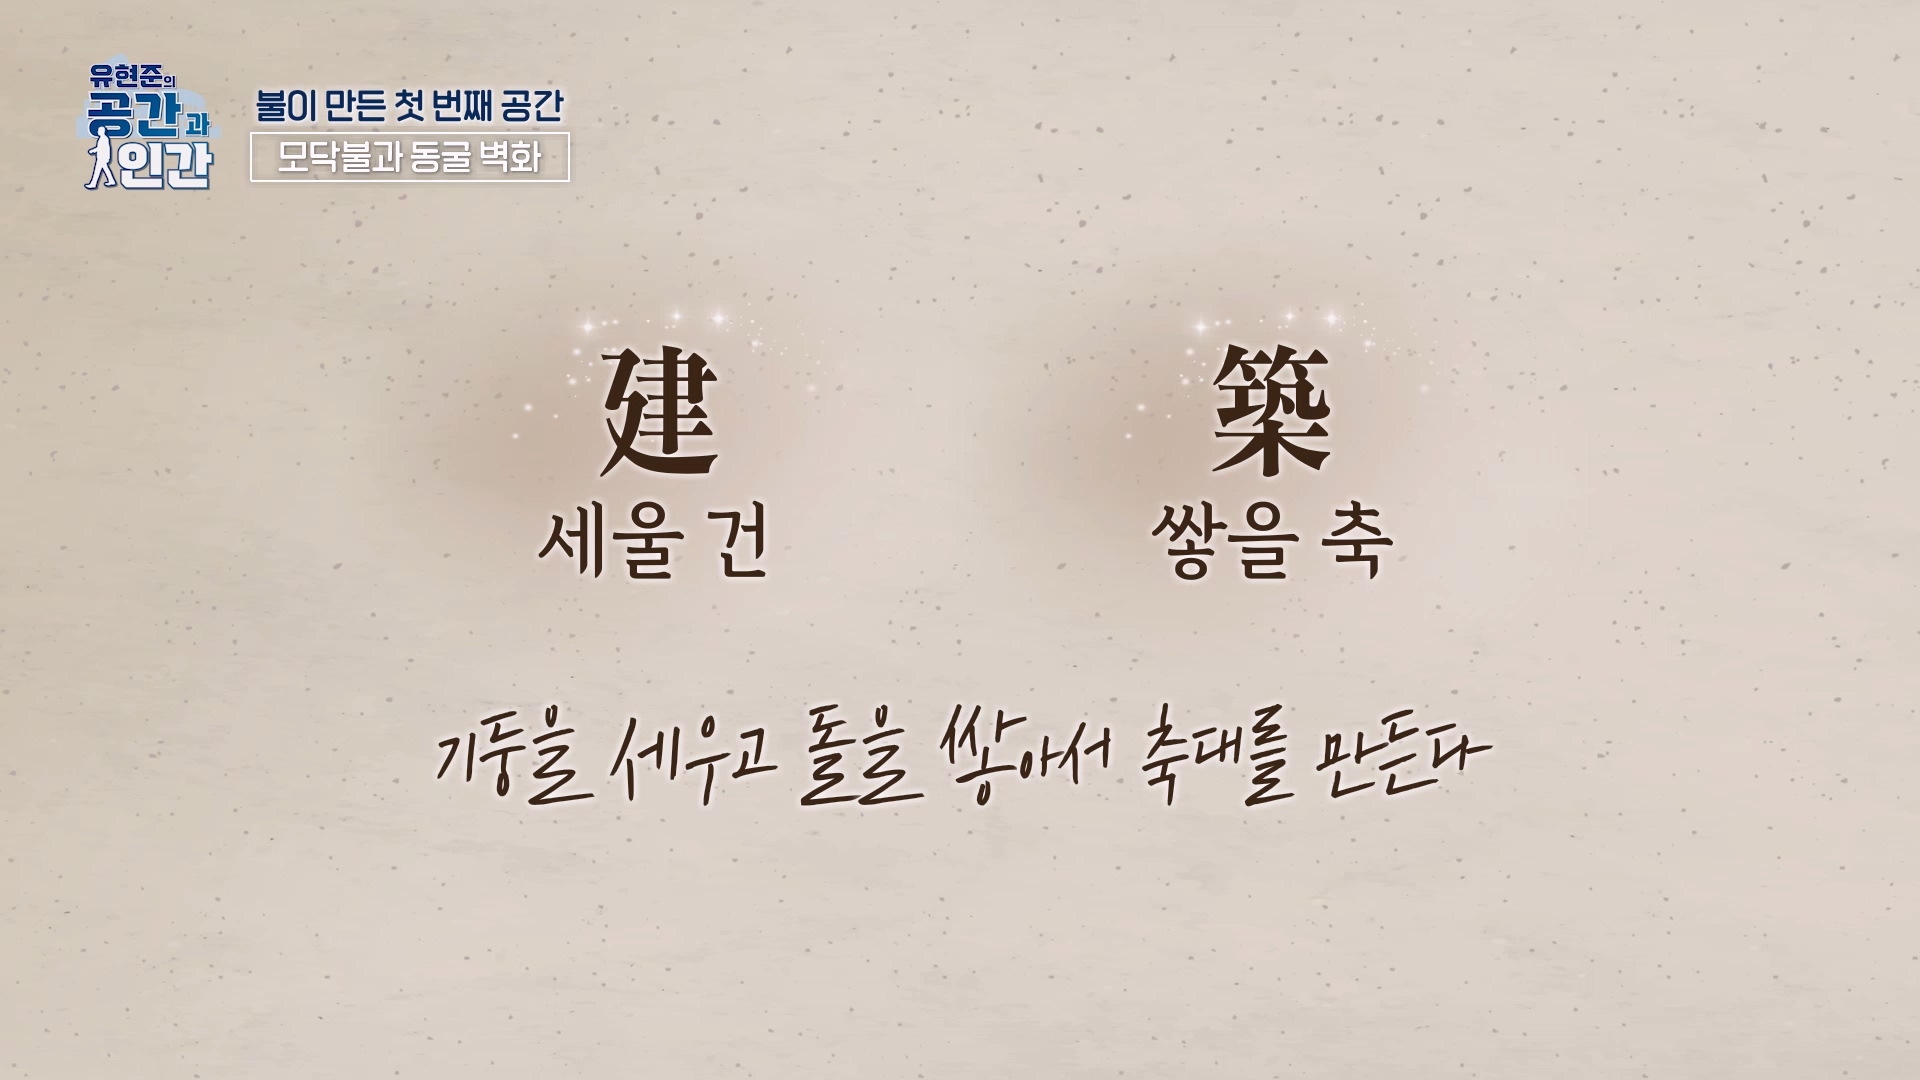 유현준의
공간과
인간
불이 만든 첫 번째 공간
모닥불과 동굴 벽화
建 築
세울 건 쌓을 축
기둥을 세우고 돌을 쌓아서 축대를 만든다